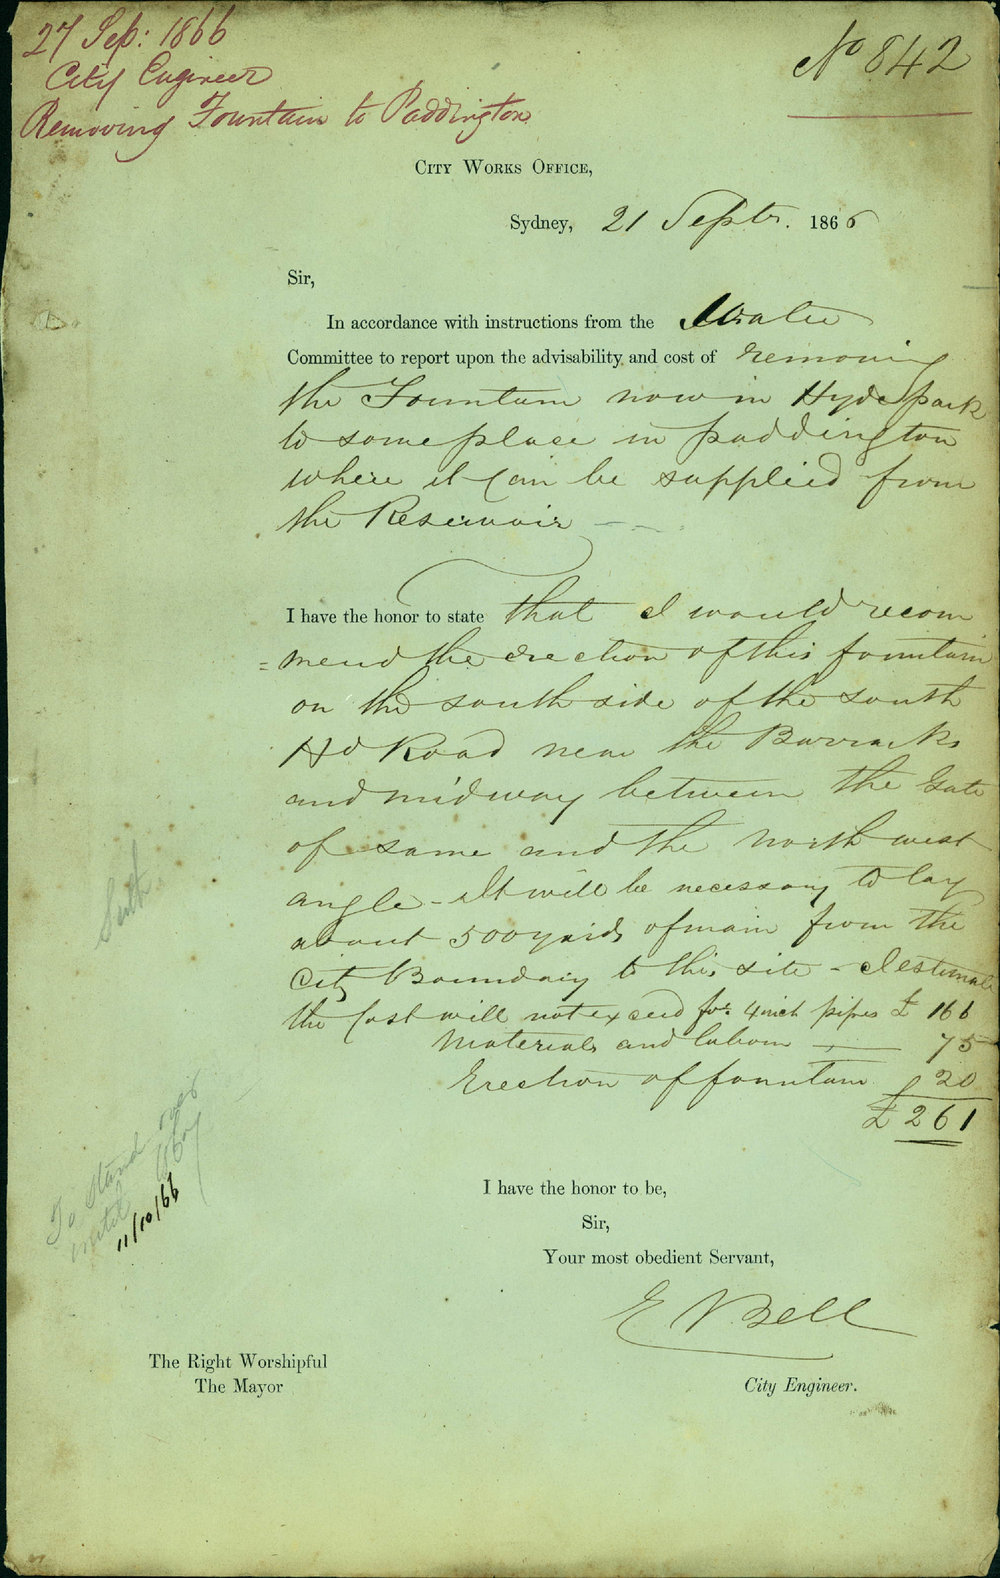 27 Sep: 1866
City Engineer
Removing Fountain to Paddington
No 842
City Works Office,
Sydney, 21 Septr. 1866
Sir,
In accordance with instructions from the Water
Committee to report upon the advisability and cost of removing
the Fountain now in Hyde park
to some place in paddington
where it can be supplied from
the Reservoir
I have the honor to state that I would recom
=mend the erection of this fountain
on the south side of the South
Hd Road near the Barracks
and midway between the Gate
of same and the North west
angle - It will be necessary to lay
about 500 yards of main from the
City Boundary to this site - I estimate
the Cost will not exceed for 4 inch pipes £ 166
Materials and labour — 75
Erection of fountain 20
£ 261
To Stand over
until
11/10/66
I have the honor to be,
Sir,
Your most obedient Servant,
E Bell
City Engineer.
The Right Worshipful
The Mayor